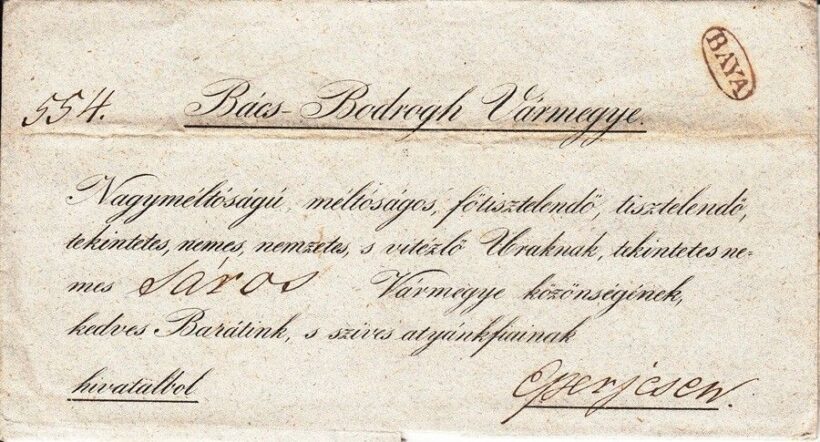 BAYA
554. Bács-Bodrogh Vármegye.
Nagyméltóságú, méltóságos, főtisztelendő, tisztelendő,
tekintetes, nemes, nemzetes, s vitézlő Uraknak, tekintetes ne-
mes Sáros Vármegye közönségének,
kedves Barátink, s szíves atyánkfiainak
hivatalbol
Eperjesen.